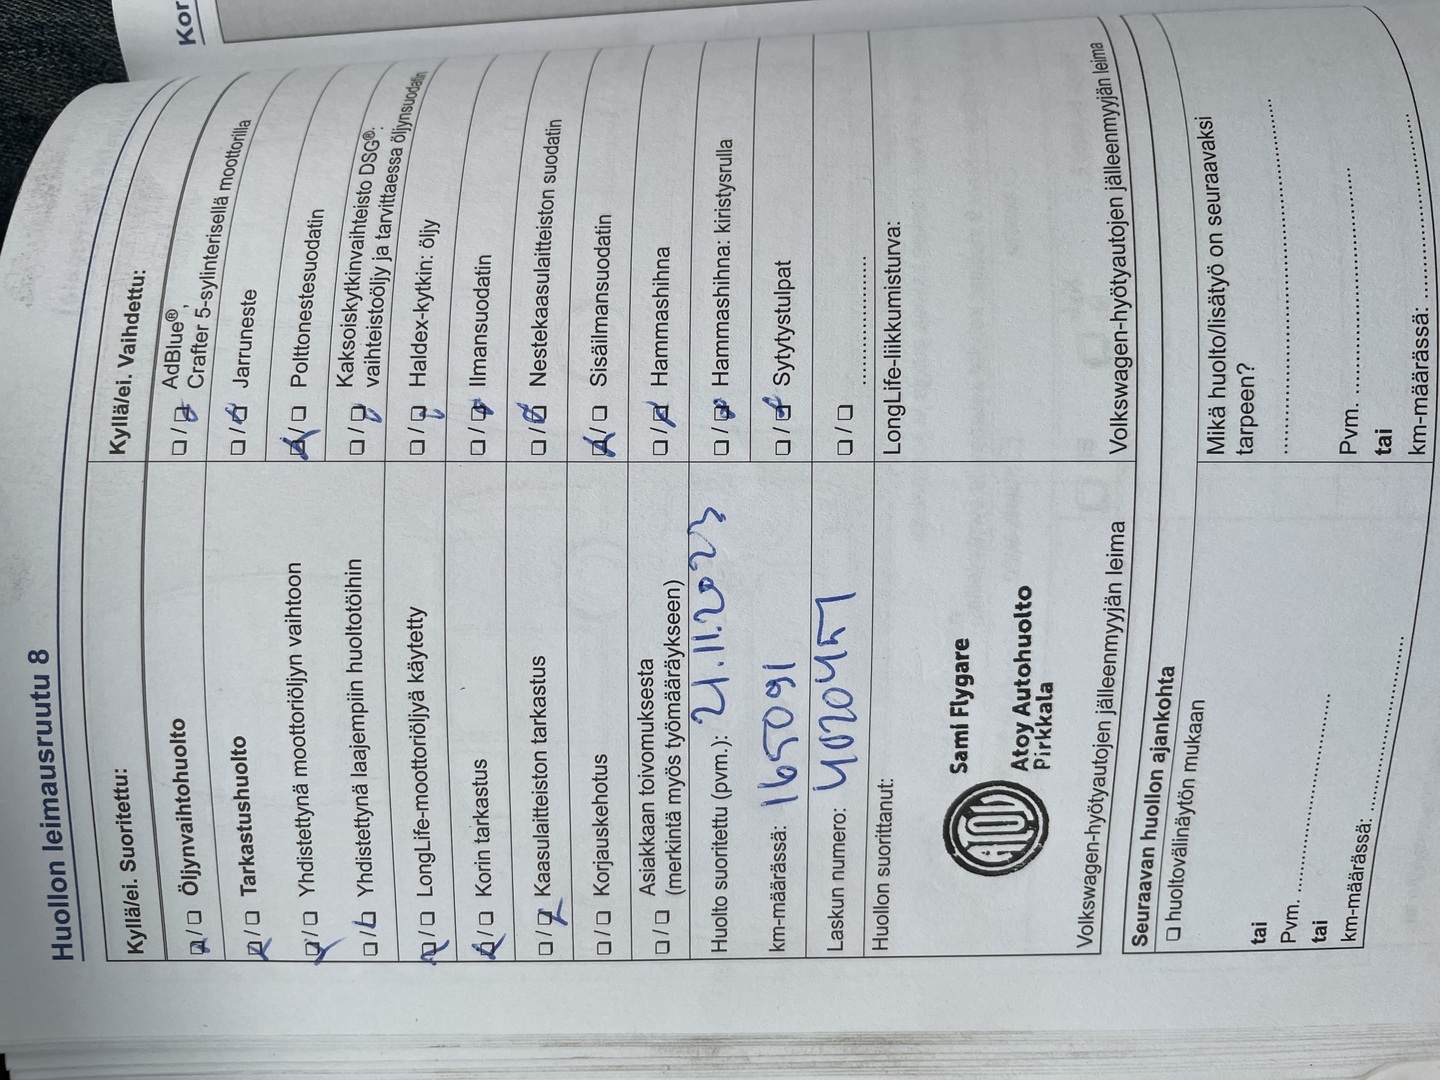 Kor
Huollon leimausruutu 8
Kyllä/ei. Suoritettu:
☒ / ☐ Öljynvaihtohuolto
☒ / ☐ Tarkastushuolto
☒ / ☐ Yhdistettynä moottoriöljyn vaihtoon
☐ / ☒ Yhdistettynä laajempiin huoltotöihin
☒ / ☐ LongLife-moottoriöljyä käytetty
☒ / ☐ Korin tarkastus
☐ / ☒ Kaasulaitteiston tarkastus
☐ / ☐ Korjauskehotus
☐ / ☐ Asiakkaan toivomuksesta
(merkintä myös työmääräykseen)
Huolto suoritettu (pvm.): 21.11.2023
km-määrässä: 165091
Laskun numero: 4020451
Huollon suorittanut:
Sami Flygare
ATOY
Atoy Autohuolto
Pirkkala
Volkswagen-hyötyautojen jälleenmyyjän leima
Kyllä/ei. Vaihdettu:
☐ / ☒ AdBlue®,
Crafter 5-sylinterisellä moottorilla
☐ / ☒ Jarruneste
☒ / ☐ Polttonestesuodatin
☐ / ☒ Kaksoiskytkinvaihteisto DSG®:
vaihteistoöljy ja tarvittaessa öljynsuodatin
☐ / ☒ Haldex-kytkin: öljy
☐ / ☒ Ilmansuodatin
☐ / ☒ Nestekaasulaitteiston suodatin
☒ / ☐ Sisäilmansuodatin
☐ / ☒ Hammashihna
☐ / ☒ Hammashihna: kiristysrulla
☐ / ☒ Sytytystulpat
☐ / ☐ ....................
LongLife-liikkumisturva:
Volkswagen-hyötyautojen jälleenmyyjän leima
Seuraavan huollon ajankohta
☐ huoltovälinäytön mukaan
tai
Pvm. ....................
tai
km-määrässä: ....................
Mikä huolto/lisätyö on seuraavaksi
tarpeen?
........................................
Pvm. ....................
tai
km-määrässä: ....................